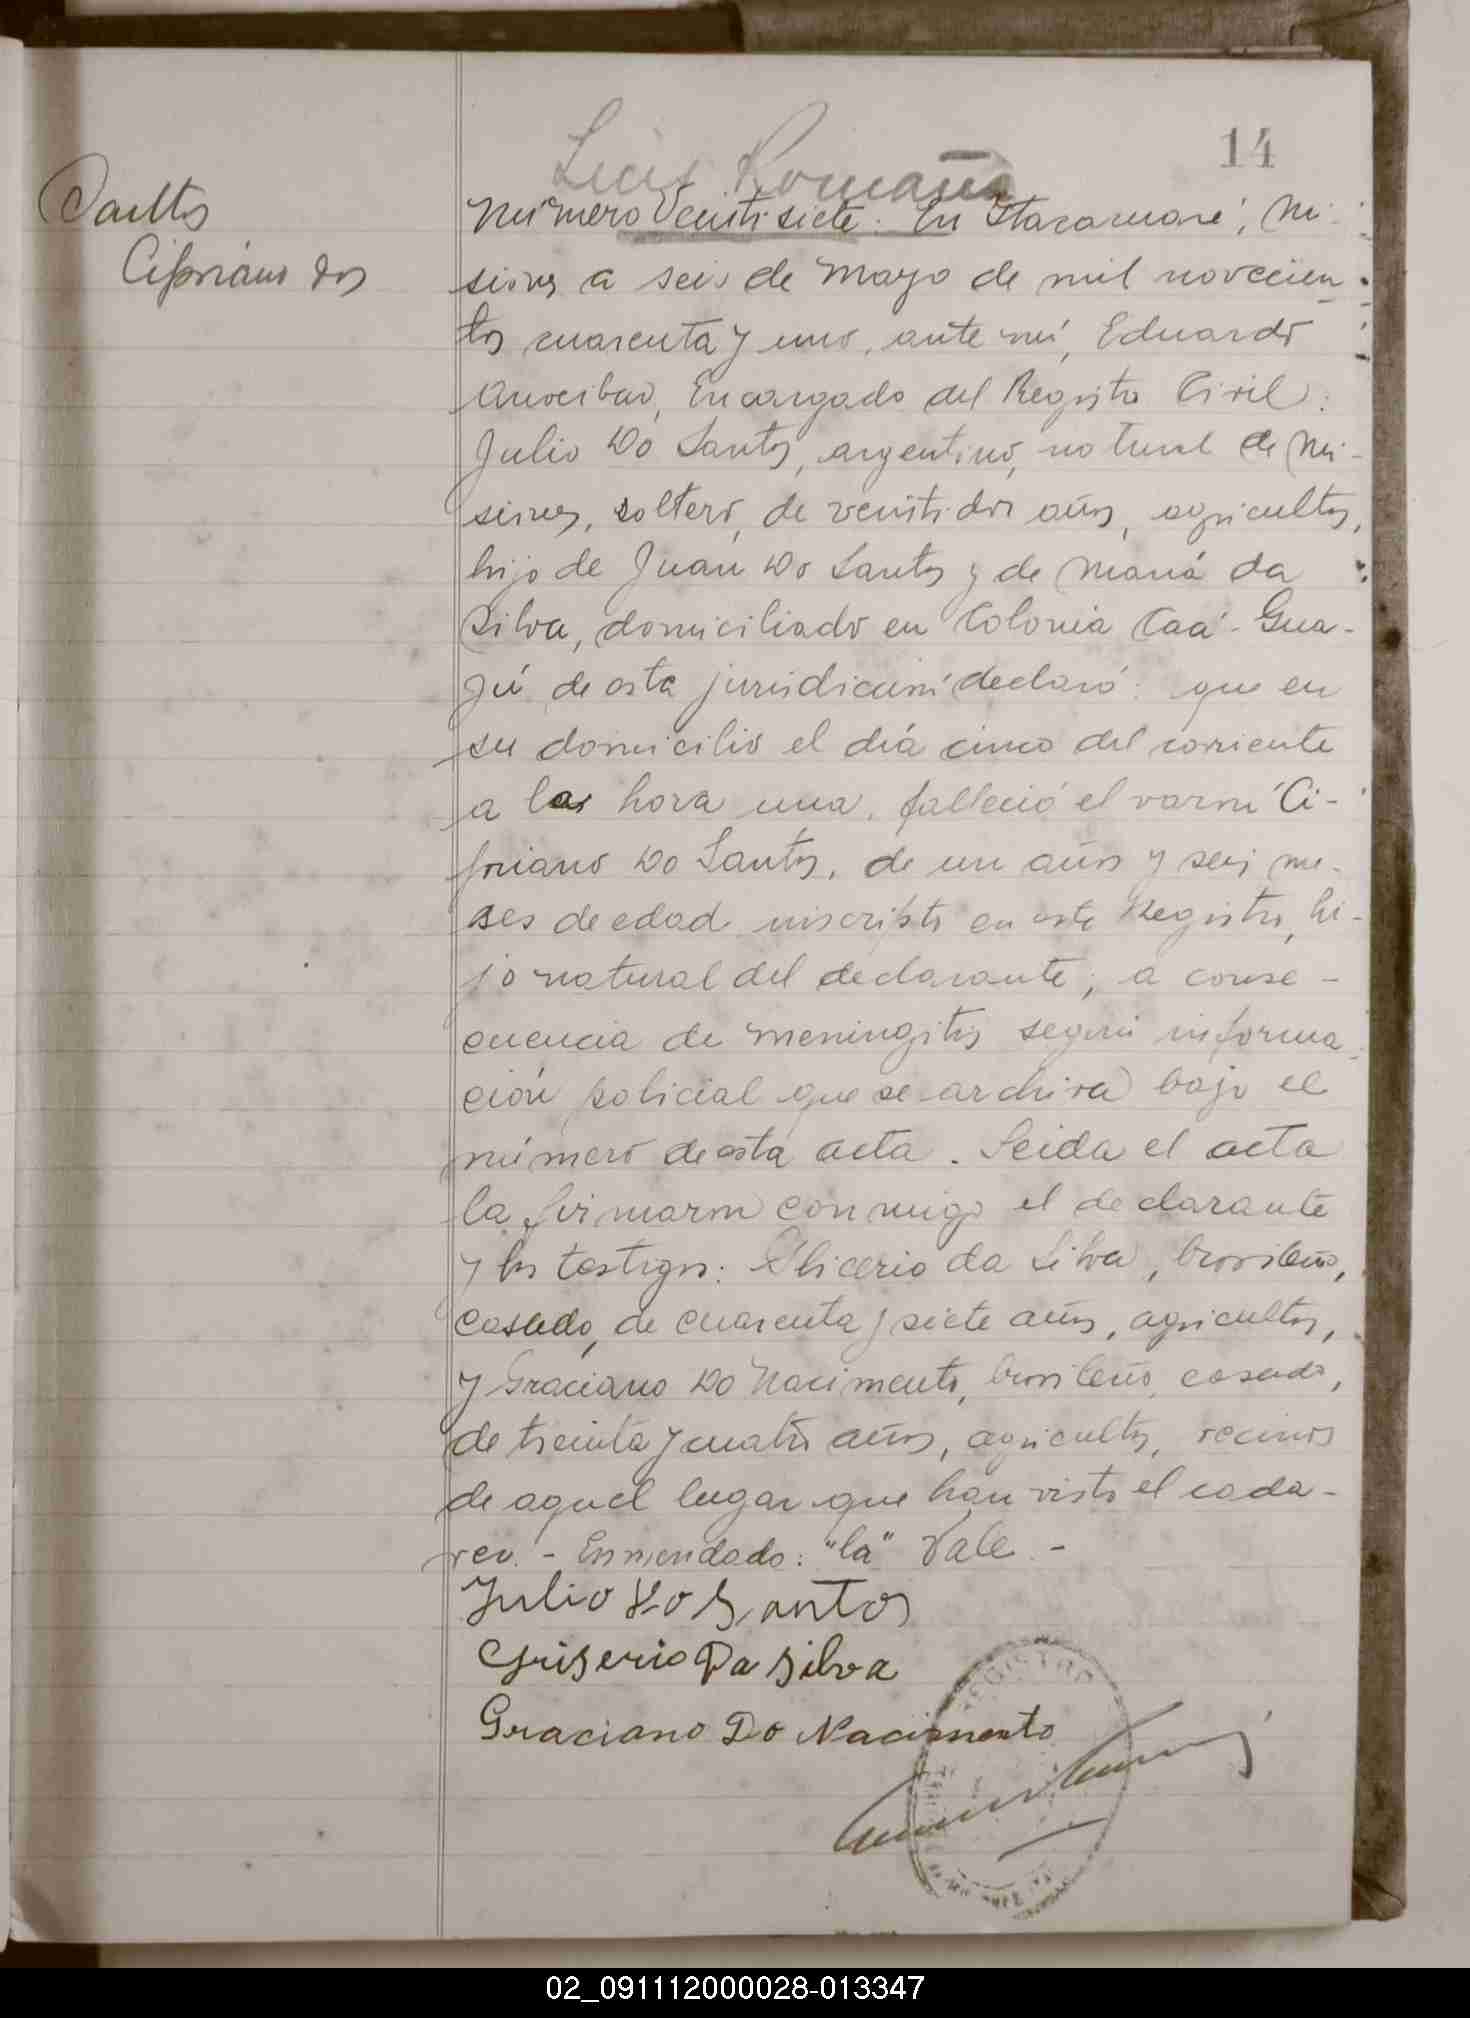 14
Luis Romano
Santos
Cipriano dos
Número Veintisiete: En Itacaruaré, Mi-
siones a seis de Mayo de mil novecien-
tos cuarenta y uno, ante mí, Eduardo
Encargado del Registro Civil:
Julio Do Santos, argentino, natural de Mi-
siones, soltero, de veintidos años, agricultor,
hijo de Juan Do Santos y de María da
Silva, domiciliado en Colonia Caá-Gua-
zú de esta jurisdicción declaró: que en
su domicilio el día cinco del corriente
a la hora una, falleció el varón Ci-
priano Do Santos, de un año y seis me-
ses de edad inscripto en este Registro, hi-
jo natural del declarante, a conse-
cuencia de meningitis según informa-
ción policial que se archiva bajo el
número de esta acta. Leida el acta
la firmaron conmigo el declarante
y los testigos: Glicerio da Silva, brasileño,
casado, de cuarenta y siete años, agricultor,
y Graciano Do Nacimento, brasileño, casado,
de treinta y cuatro años, agricultor, vecinos
de aquel lugar que han visto el cada-
ver. - Enmendado: "la" Vale. -
Julio Do Santos
Griserio Da Silva
Graciano Do Nacimento
REGISTRO
02_091112000028-013347